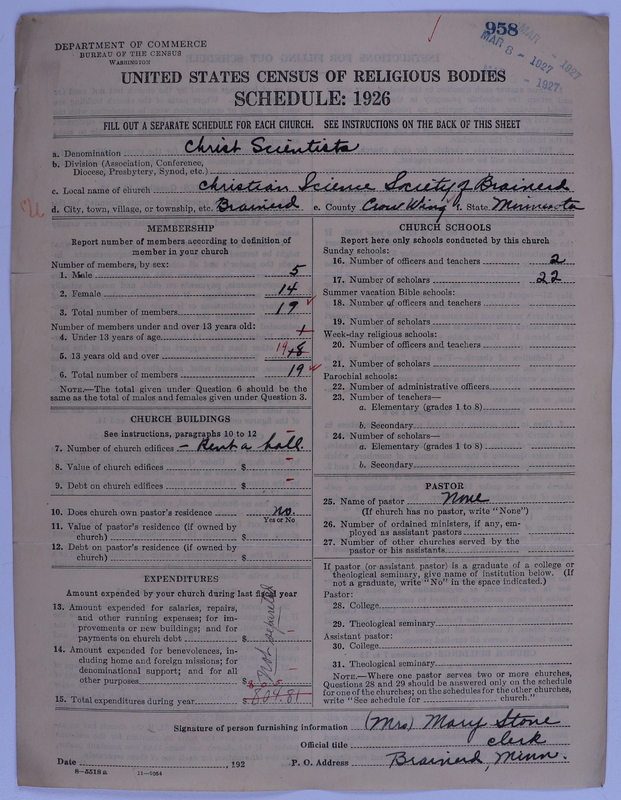 958
MAR 8 - 1927
MAR 1927
- 1927
DEPARTMENT OF COMMERCE
BUREAU OF THE CENSUS
WASHINGTON
UNITED STATES CENSUS OF RELIGIOUS BODIES
SCHEDULE: 1926
FILL OUT A SEPARATE SCHEDULE FOR EACH CHURCH. SEE INSTRUCTIONS ON THE BACK OF THIS SHEET
a. Denomination Christ Scientists
b. Division (Association, Conference,
Diocese, Presbytery, Synod, etc.)
c. Local name of church Christian Science Society of Brainerd
d. City, town, village, or township, etc. Brainerd e. County Crow Wing f. State Minnesota
MEMBERSHIP
Report number of members according to definition of
member in your church
Number of members, by sex:
1. Male 5
2. Female 14
3. Total number of members 19
Number of members under and over 13 years old:
4. Under 13 years of age 1
5. 13 years old and over 19 18
6. Total number of members 19
NOTE.—The total given under Question 6 should be the
same as the total of males and females given under Question 3.
CHURCH BUILDINGS
See instructions, paragraphs 10 to 12
7. Number of church edifices - Rent a hall
8. Value of church edifices $
9. Debt on church edifices $
10. Does church own pastor's residence no.
Yes or No
11. Value of pastor's residence (if owned by
church) $
12. Debt on pastor's residence (if owned by
church) $
EXPENDITURES
Amount expended by your church during last fiscal year
13. Amount expended for salaries, repairs,
and other running expenses; for im-
provements or new buildings; and for
payments on church debt $
14. Amount expended for benevolences, in-
cluding home and foreign missions; for
denominational support; and for all
other purposes $
not separated
15. Total expenditures during year $ 804.81
CHURCH SCHOOLS
Report here only schools conducted by this church
Sunday schools:
16. Number of officers and teachers 2
17. Number of scholars 22
Summer vacation Bible schools:
18. Number of officers and teachers
19. Number of scholars
Week-day religious schools:
20. Number of officers and teachers
21. Number of scholars
Parochial schools:
22. Number of administrative officers
23. Number of teachers—
a. Elementary (grades 1 to 8)
b. Secondary
24. Number of scholars—
a. Elementary (grades 1 to 8)
b. Secondary
PASTOR
25. Name of pastor None
(If church has no pastor, write "None")
26. Number of ordained ministers, if any, em-
ployed as assistant pastors
27. Number of other churches served by the
pastor or his assistants
If pastor (or assistant pastor) is a graduate of a college or
theological seminary, give name of institution below. (If
not a graduate, write "No" in the space indicated.)
Pastor:
28. College
29. Theological seminary
Assistant pastor:
30. College
31. Theological seminary
NOTE.—Where one pastor serves two or more churches,
Questions 28 and 29 should be answered only on the schedule
for one of the churches; on the schedules for the other churches,
write "See schedule for church."
Signature of person furnishing information (Mrs) Mary Stone
Official title clerk
Date , 192 P. O. Address Brainerd, Minn.
8—5518a 11—9064